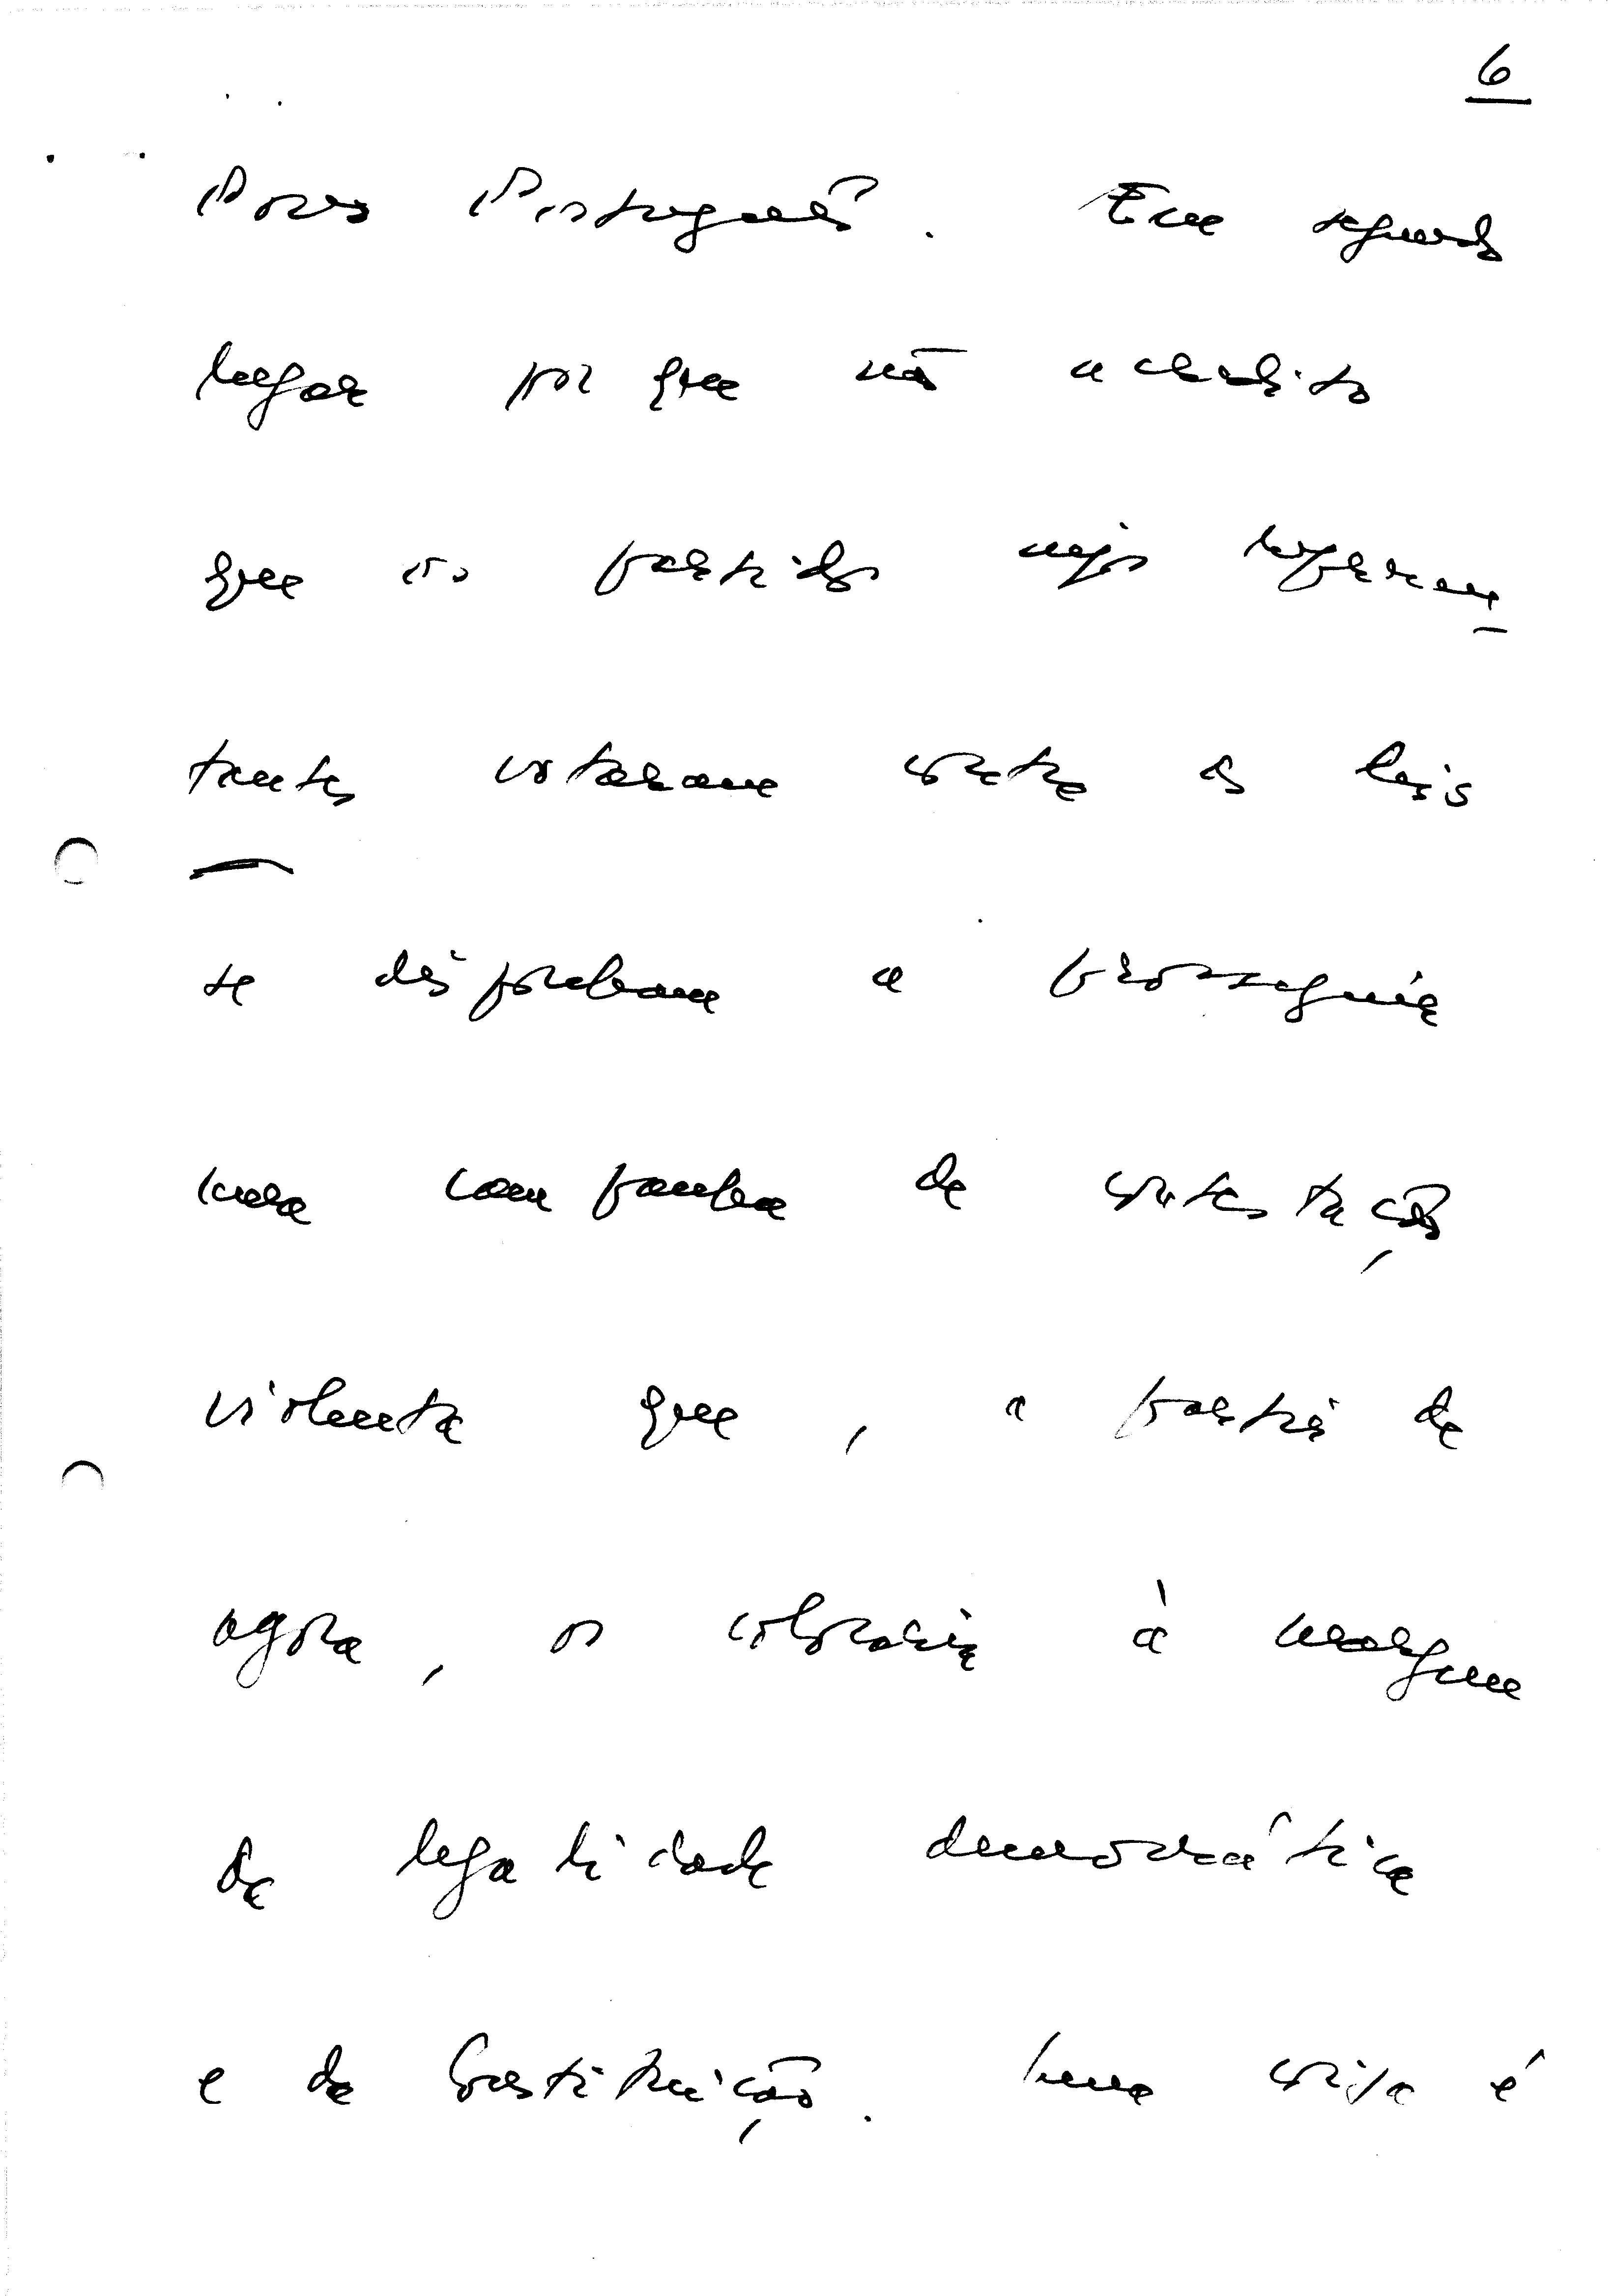 6
Povo Português. Em segundo
lugar por que não acredito
que os partidos cujos represen_
tantes votaram contra as leis
se disponham a prosseguir
numa campanha de contestação
violenta que, a partir de
agora, os colocaria à margem
da legalidade democrática
e da Constituição. Uma coisa é